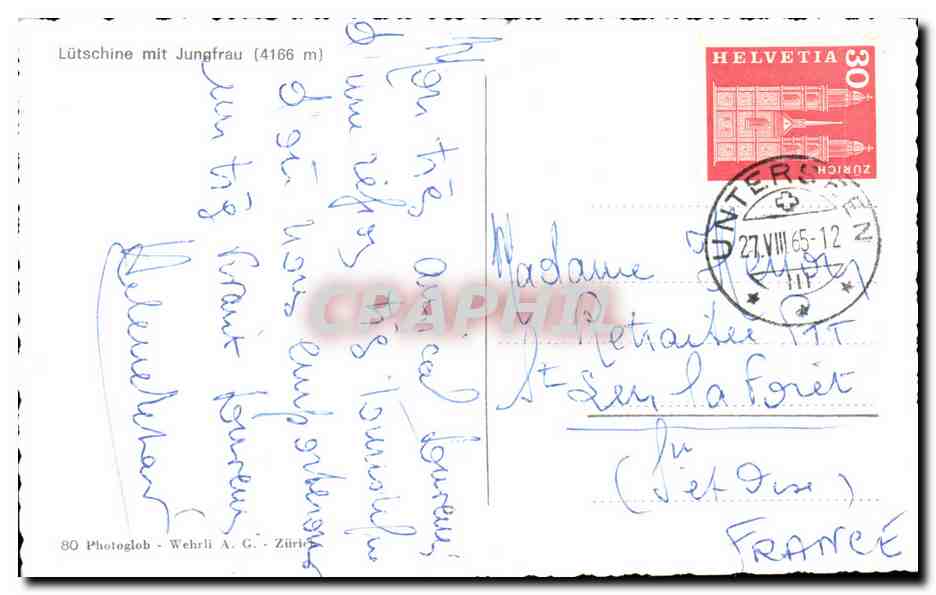 Lütschine mit Jungfrau (4166 m)
Mon très amical souvenir
d'une très touristique
d'où nous emporterons
un très vivant souvenir
HELVETIA
30
ZÜRICH
UNTERSEEN
27.VIII.65-12
Madame
Retraitée PTT
St Leu la Forêt
Sn
(S et Oise)
FRANCE
80 Photoglob - Wehrli A. G. - Zürich
CRAPHIL